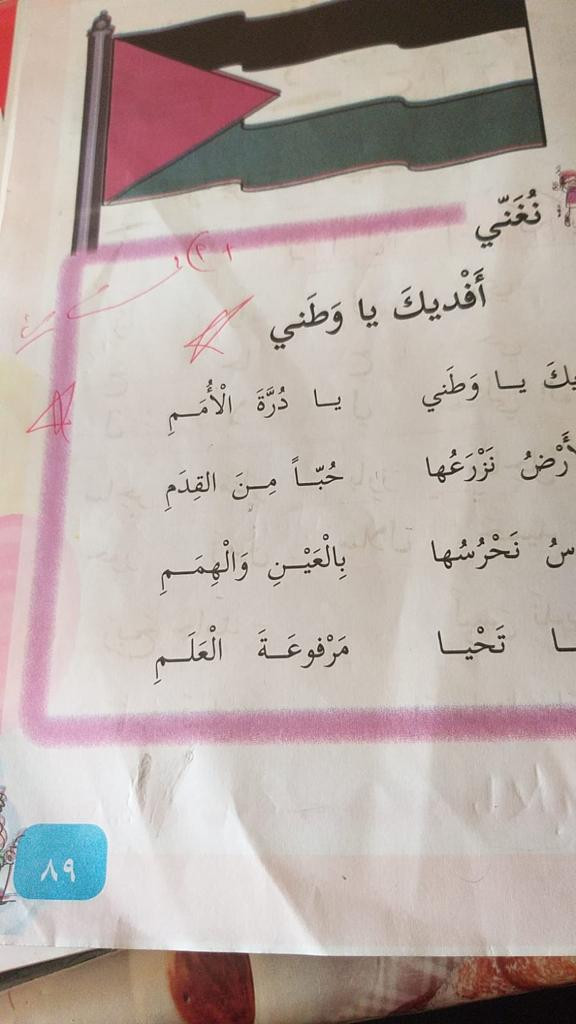 نُغَنّي
أَفْديكَ يا وَطَني
يا وَطَني يا دُرَّةَ الْأُمَمِ
نَزْرَعُها حُبّاً مِنَ القِدَمِ
نَحْرُسُها بِالْعَيْنِ وَالْهِمَمِ
تَحْيا مَرْفوعَةَ الْعَلَمِ
٨٩